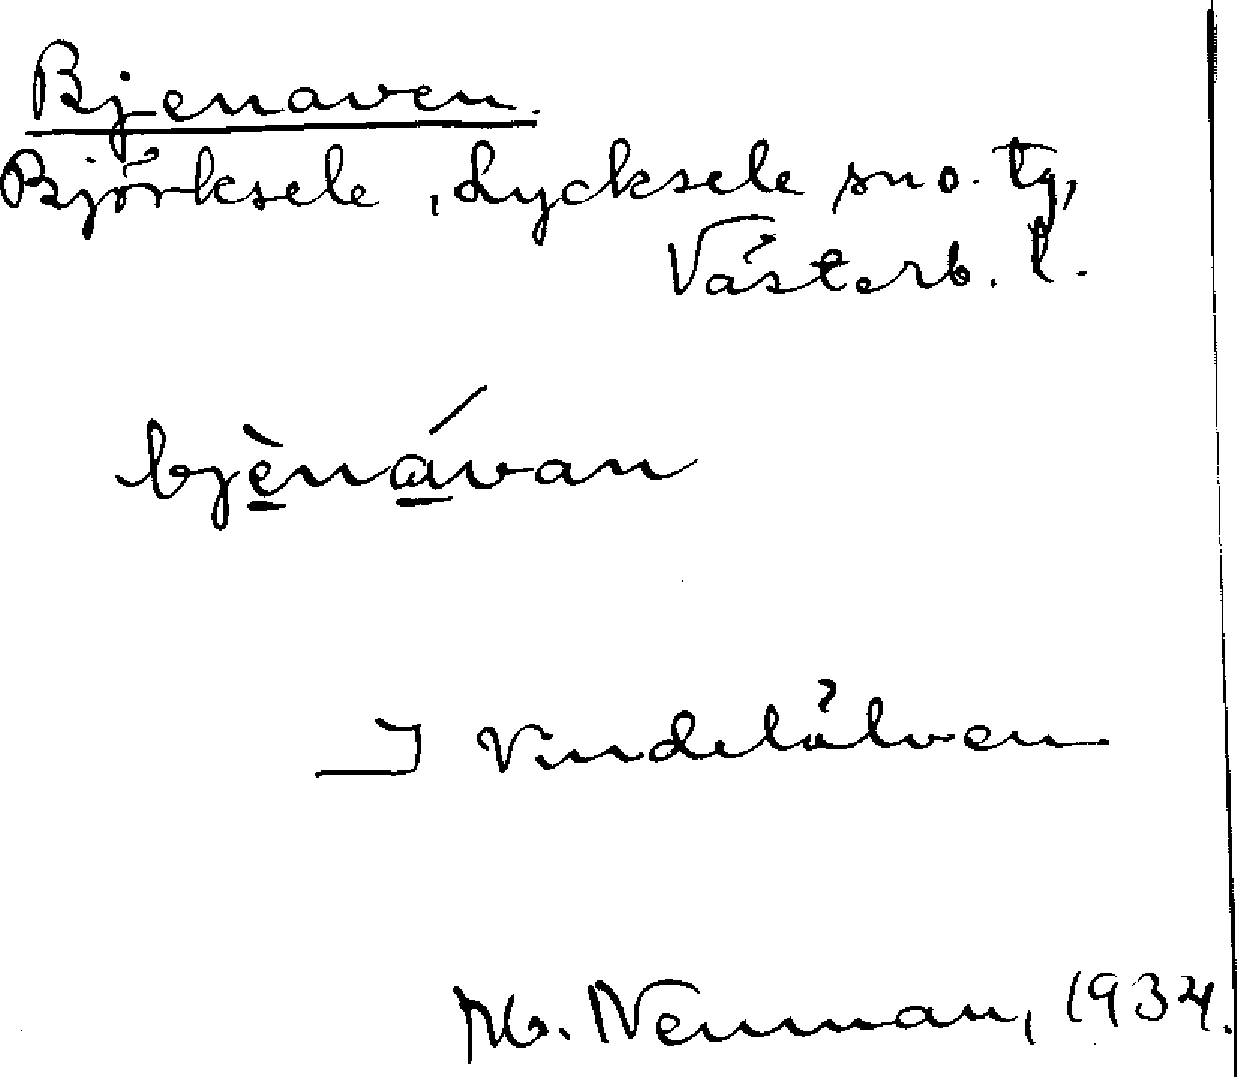 Bjenaven.
Björksele, Lycksele sno. tg,
Västerb. l.
bjènávan
I Vindelälven
Ab. Neuman, 1934.